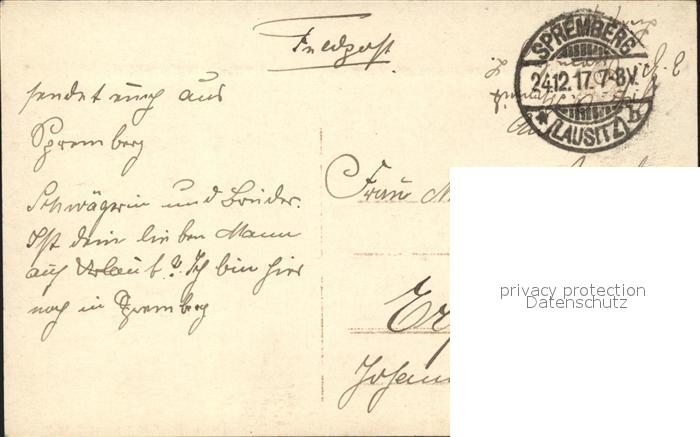 Feldpost.
SPREMBERG
24.12.17. 7-8V.
* (LAUSITZ) b
sendet euch aus
Spremberg
Schwägerin und Bruder.
Ist dein lieber Mann
auch Urlaub? Ich bin hier
noch in Spremberg
Frau M
Er
Johann
privacy protection
Datenschutz